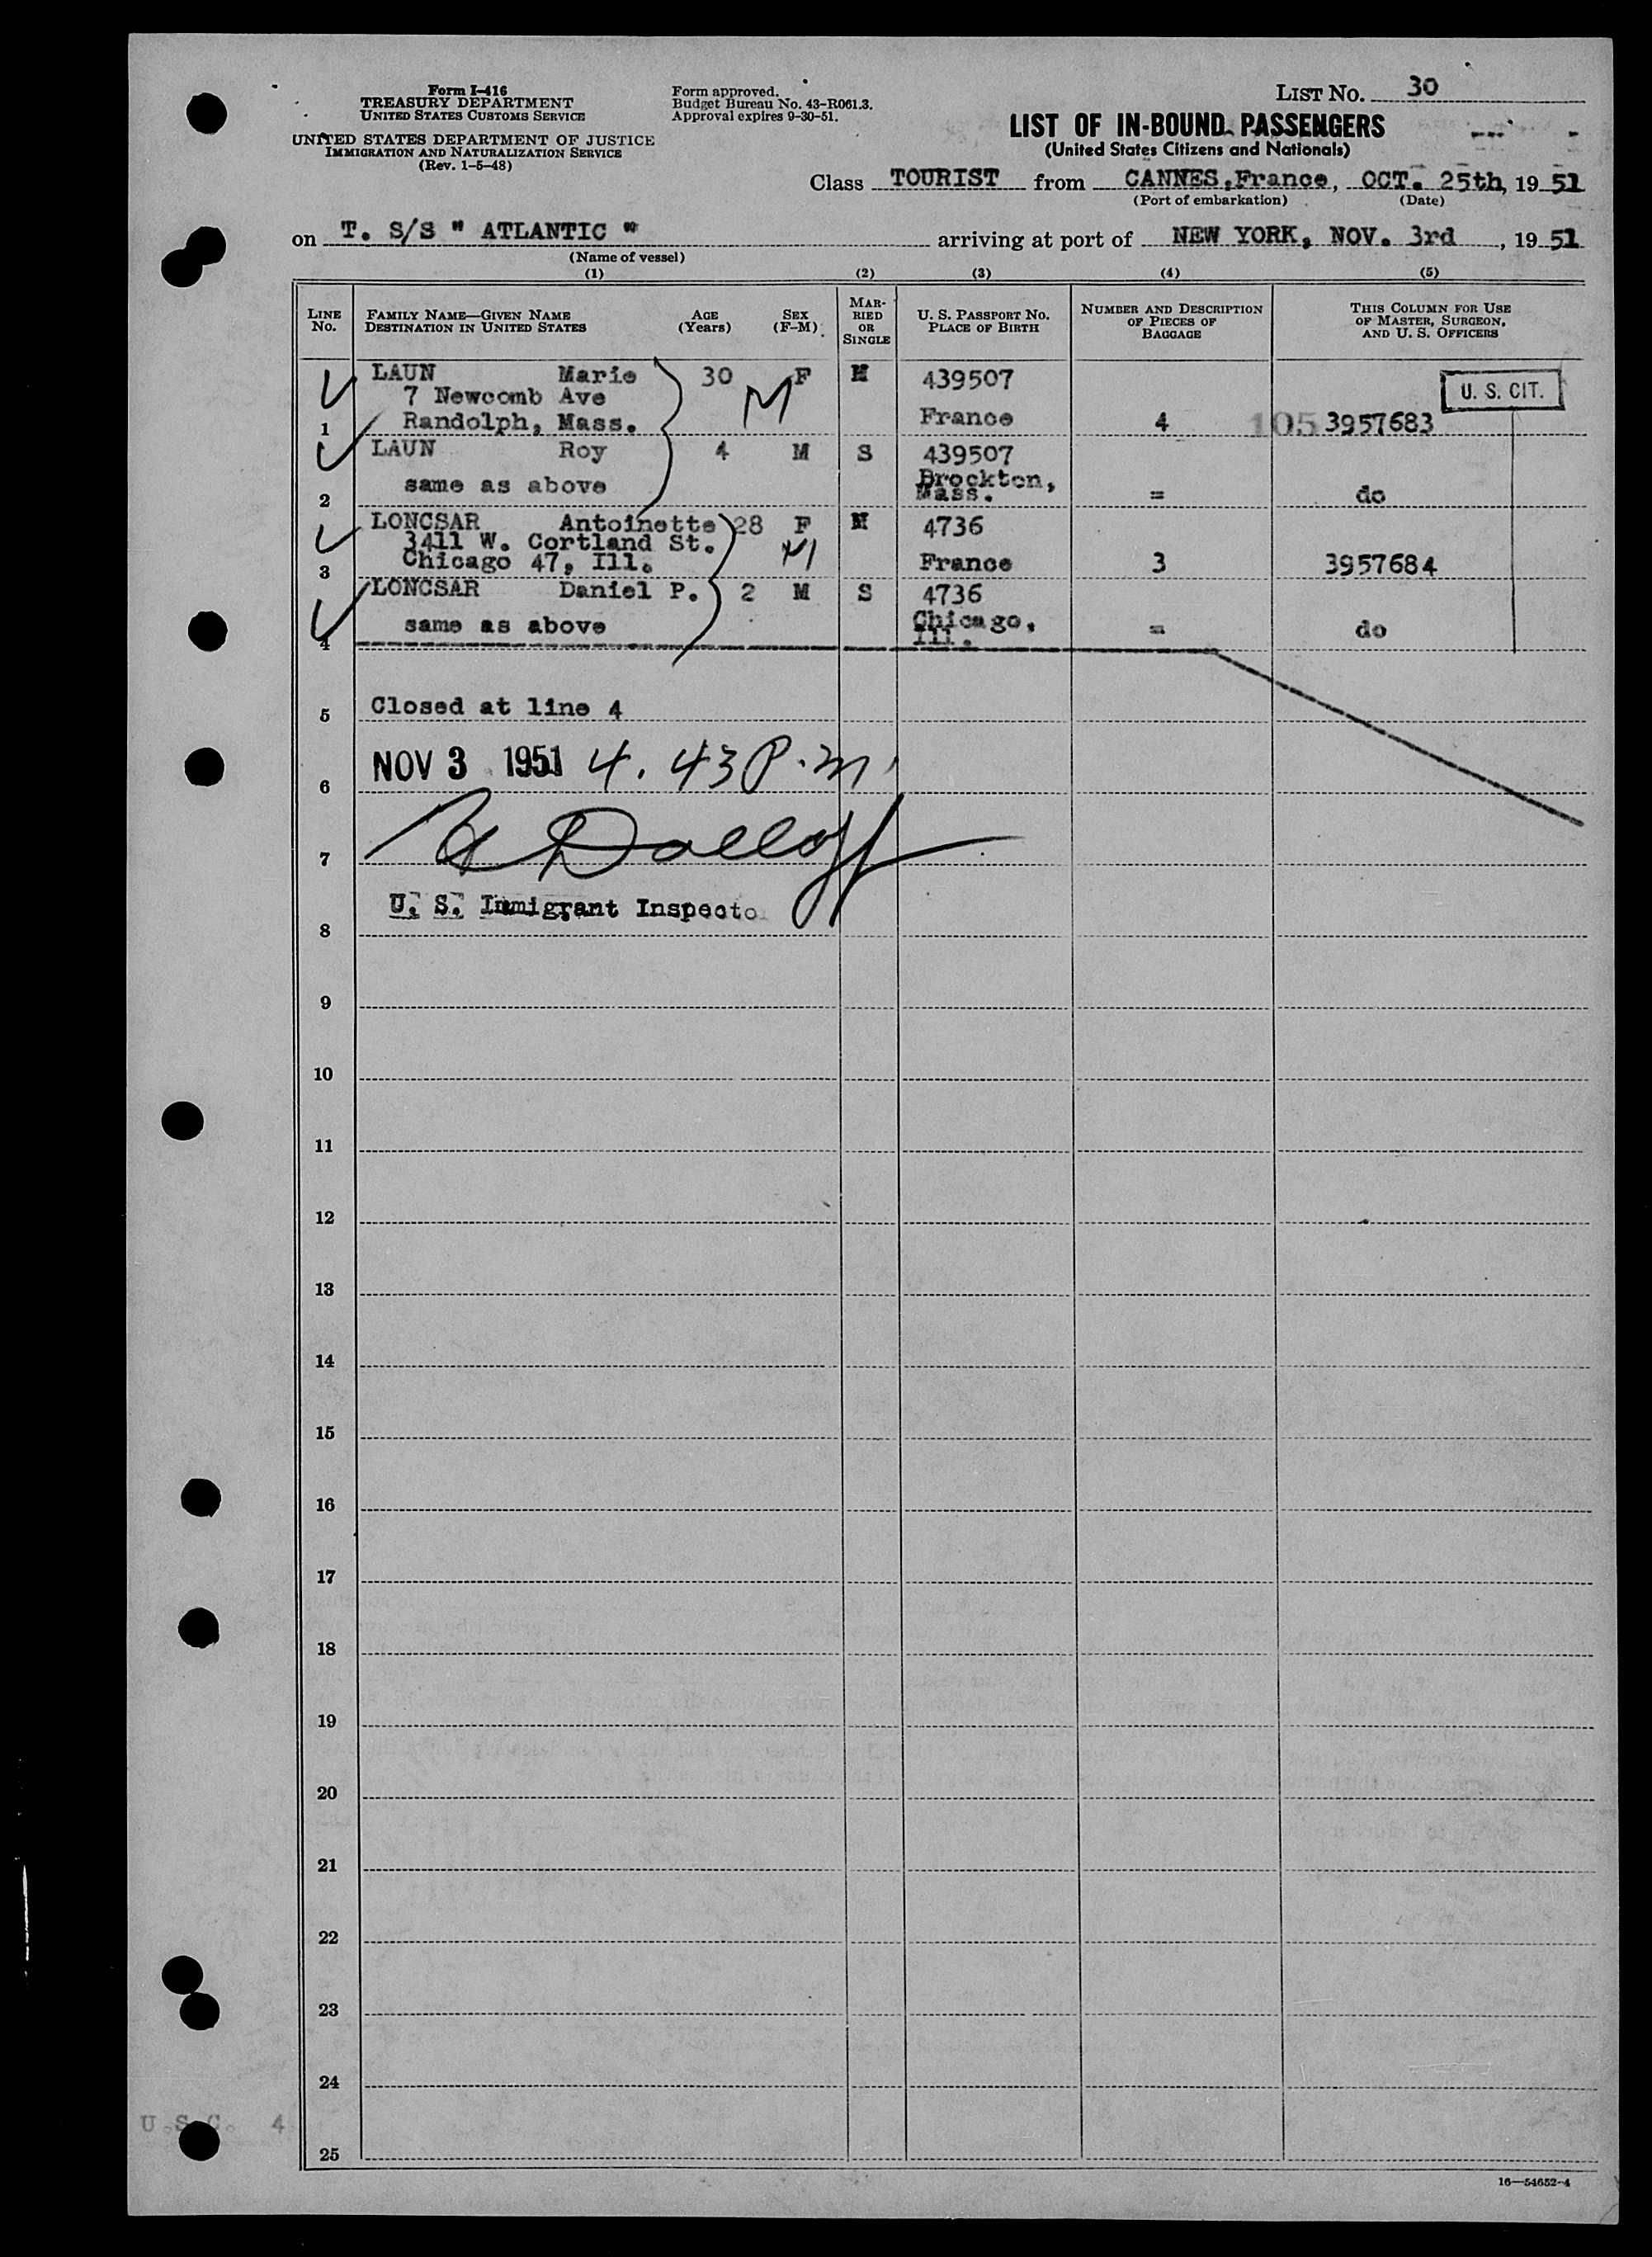 Form I-416
TREASURY DEPARTMENT
UNITED STATES CUSTOMS SERVICE
UNITED STATES DEPARTMENT OF JUSTICE
IMMIGRATION AND NATURALIZATION SERVICE
(Rev. 1-5-48)
Form approved.
Budget Bureau No. 43-R061.3.
Approval expires 9-30-51.
LIST No. 30
LIST OF IN-BOUND PASSENGERS
(United States Citizens and Nationals)
Class TOURIST from CANNES, France, OCT. 25th, 19 51
(Port of embarkation) (Date)
on T. S/S " ATLANTIC " arriving at port of NEW YORK, NOV. 3rd , 19 51
(Name of vessel)
(1) (2) (3) (4) (5)
LINE No. FAMILY NAME—GIVEN NAME DESTINATION IN UNITED STATES AGE (Years) SEX (F-M) MARRIED OR SINGLE U. S. PASSPORT NO. PLACE OF BIRTH NUMBER AND DESCRIPTION OF PIECES OF BAGGAGE THIS COLUMN FOR USE OF MASTER, SURGEON, AND U. S. OFFICERS
LAUN Marie 30 F M 439507 U. S. CIT.
7 Newcomb Ave M
1 Randolph, Mass. France 4 105 3957683
LAUN Roy 4 M S 439507
2 same as above Brockton, Mass. = do
LONCSAR Antoinette 28 F M 4736
3411 W. Cortland St. M
3 Chicago 47, Ill. France 3 3957684
LONCSAR Daniel P. 2 M S 4736
4 same as above Chicago, Ill. = do
5 Closed at line 4
6 NOV 3 1951 4.43 P.m.
7
U. S. Immigrant Inspecto
8
9
10
11
12
13
14
15
16
17
18
19
20
21
22
23
24
U.S.C. 4
25
16—54652-4